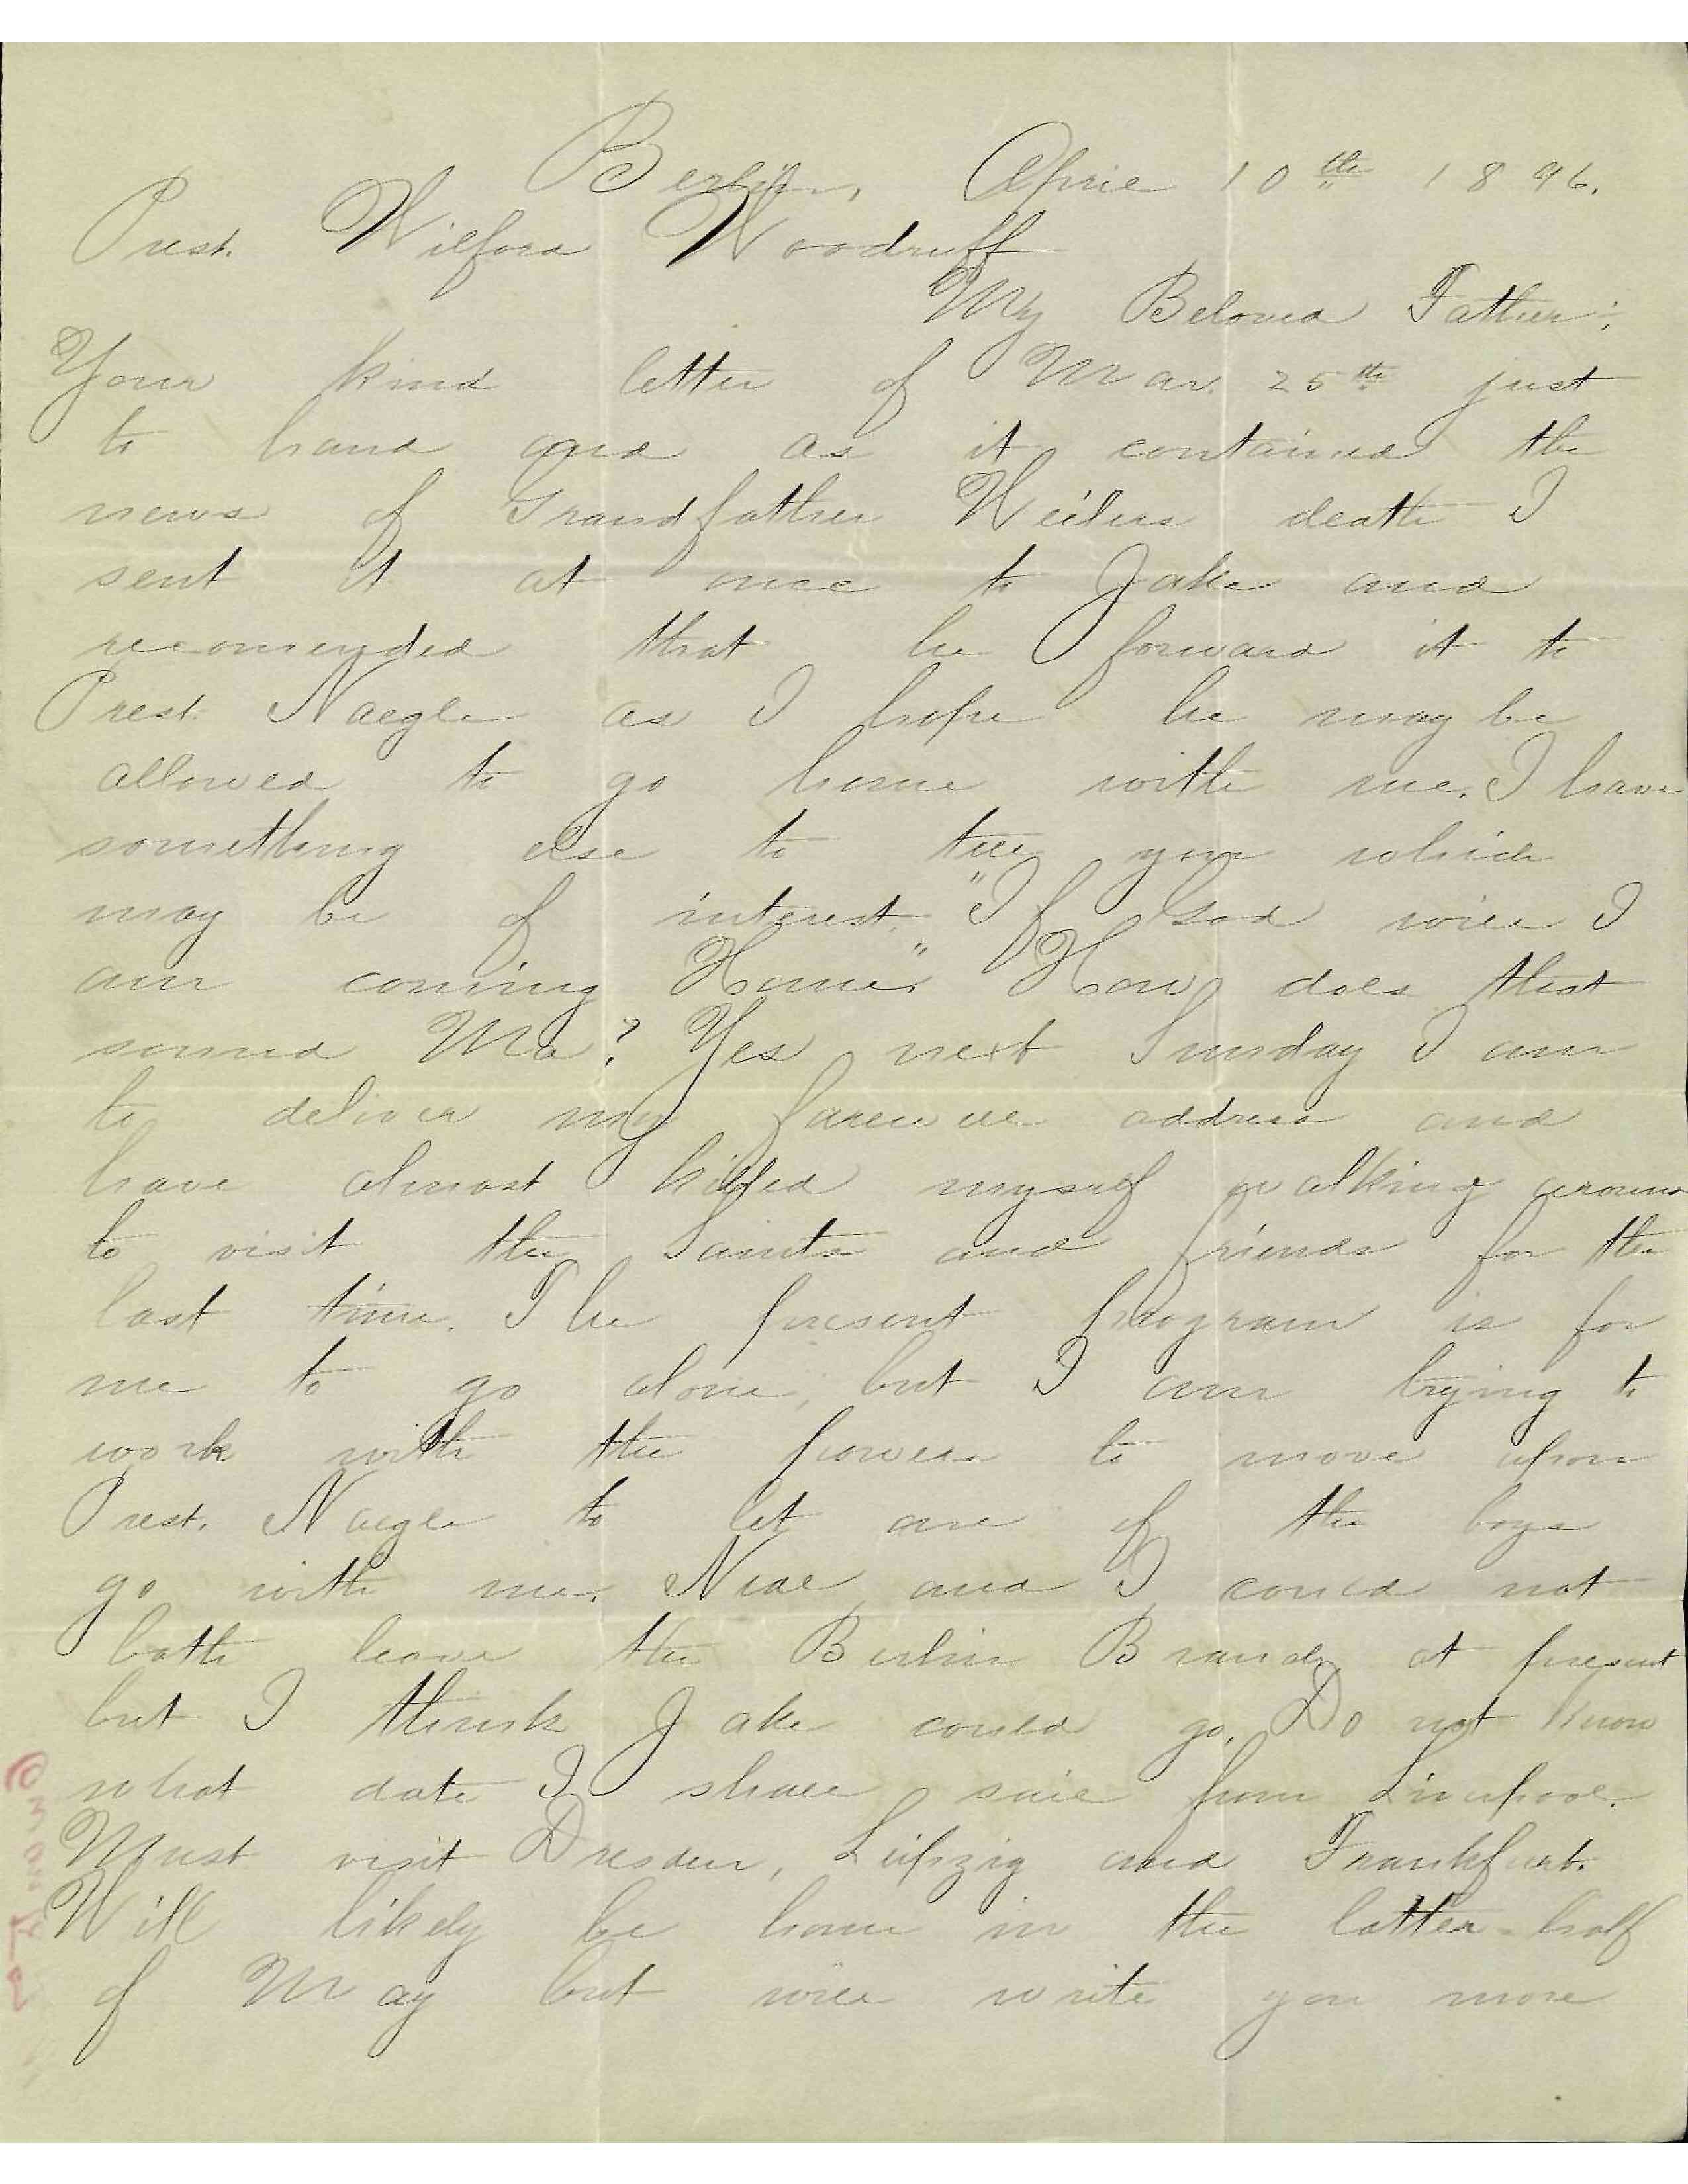 Berlin, April 10th 1896.
Prest. Wilford Woodruff
My Beloved Father;
Your kind letter of Mar. 25th just
to hand and as it contained the
news of Grandfather Weilers death I
sent it at once to Jake and
recomended that he forward it to
Prest. Naegle as I hope he may be
allowed to go home with me. I have
something else to tell you which
may be of interest. "If God will I
am coming Home." How does that
sound Ma? Yes next Sunday I am
to deliver my farewell address and
have almost killed myself walking around
to visit the Saints and friends for the
last time. The present program is for
me to go alone, but I am trying to
work with the powers to move upon
Prest. Naegle to let one of the boys
go with me. and I could not
both leave the Berlin Branch at present
but I think Jake could go. Do not know
what date I shall sail from Liverpool.
Must visit Dresden, Leipzig and Frankfurt.
Will likely be home in the latter half
of May but will write you more